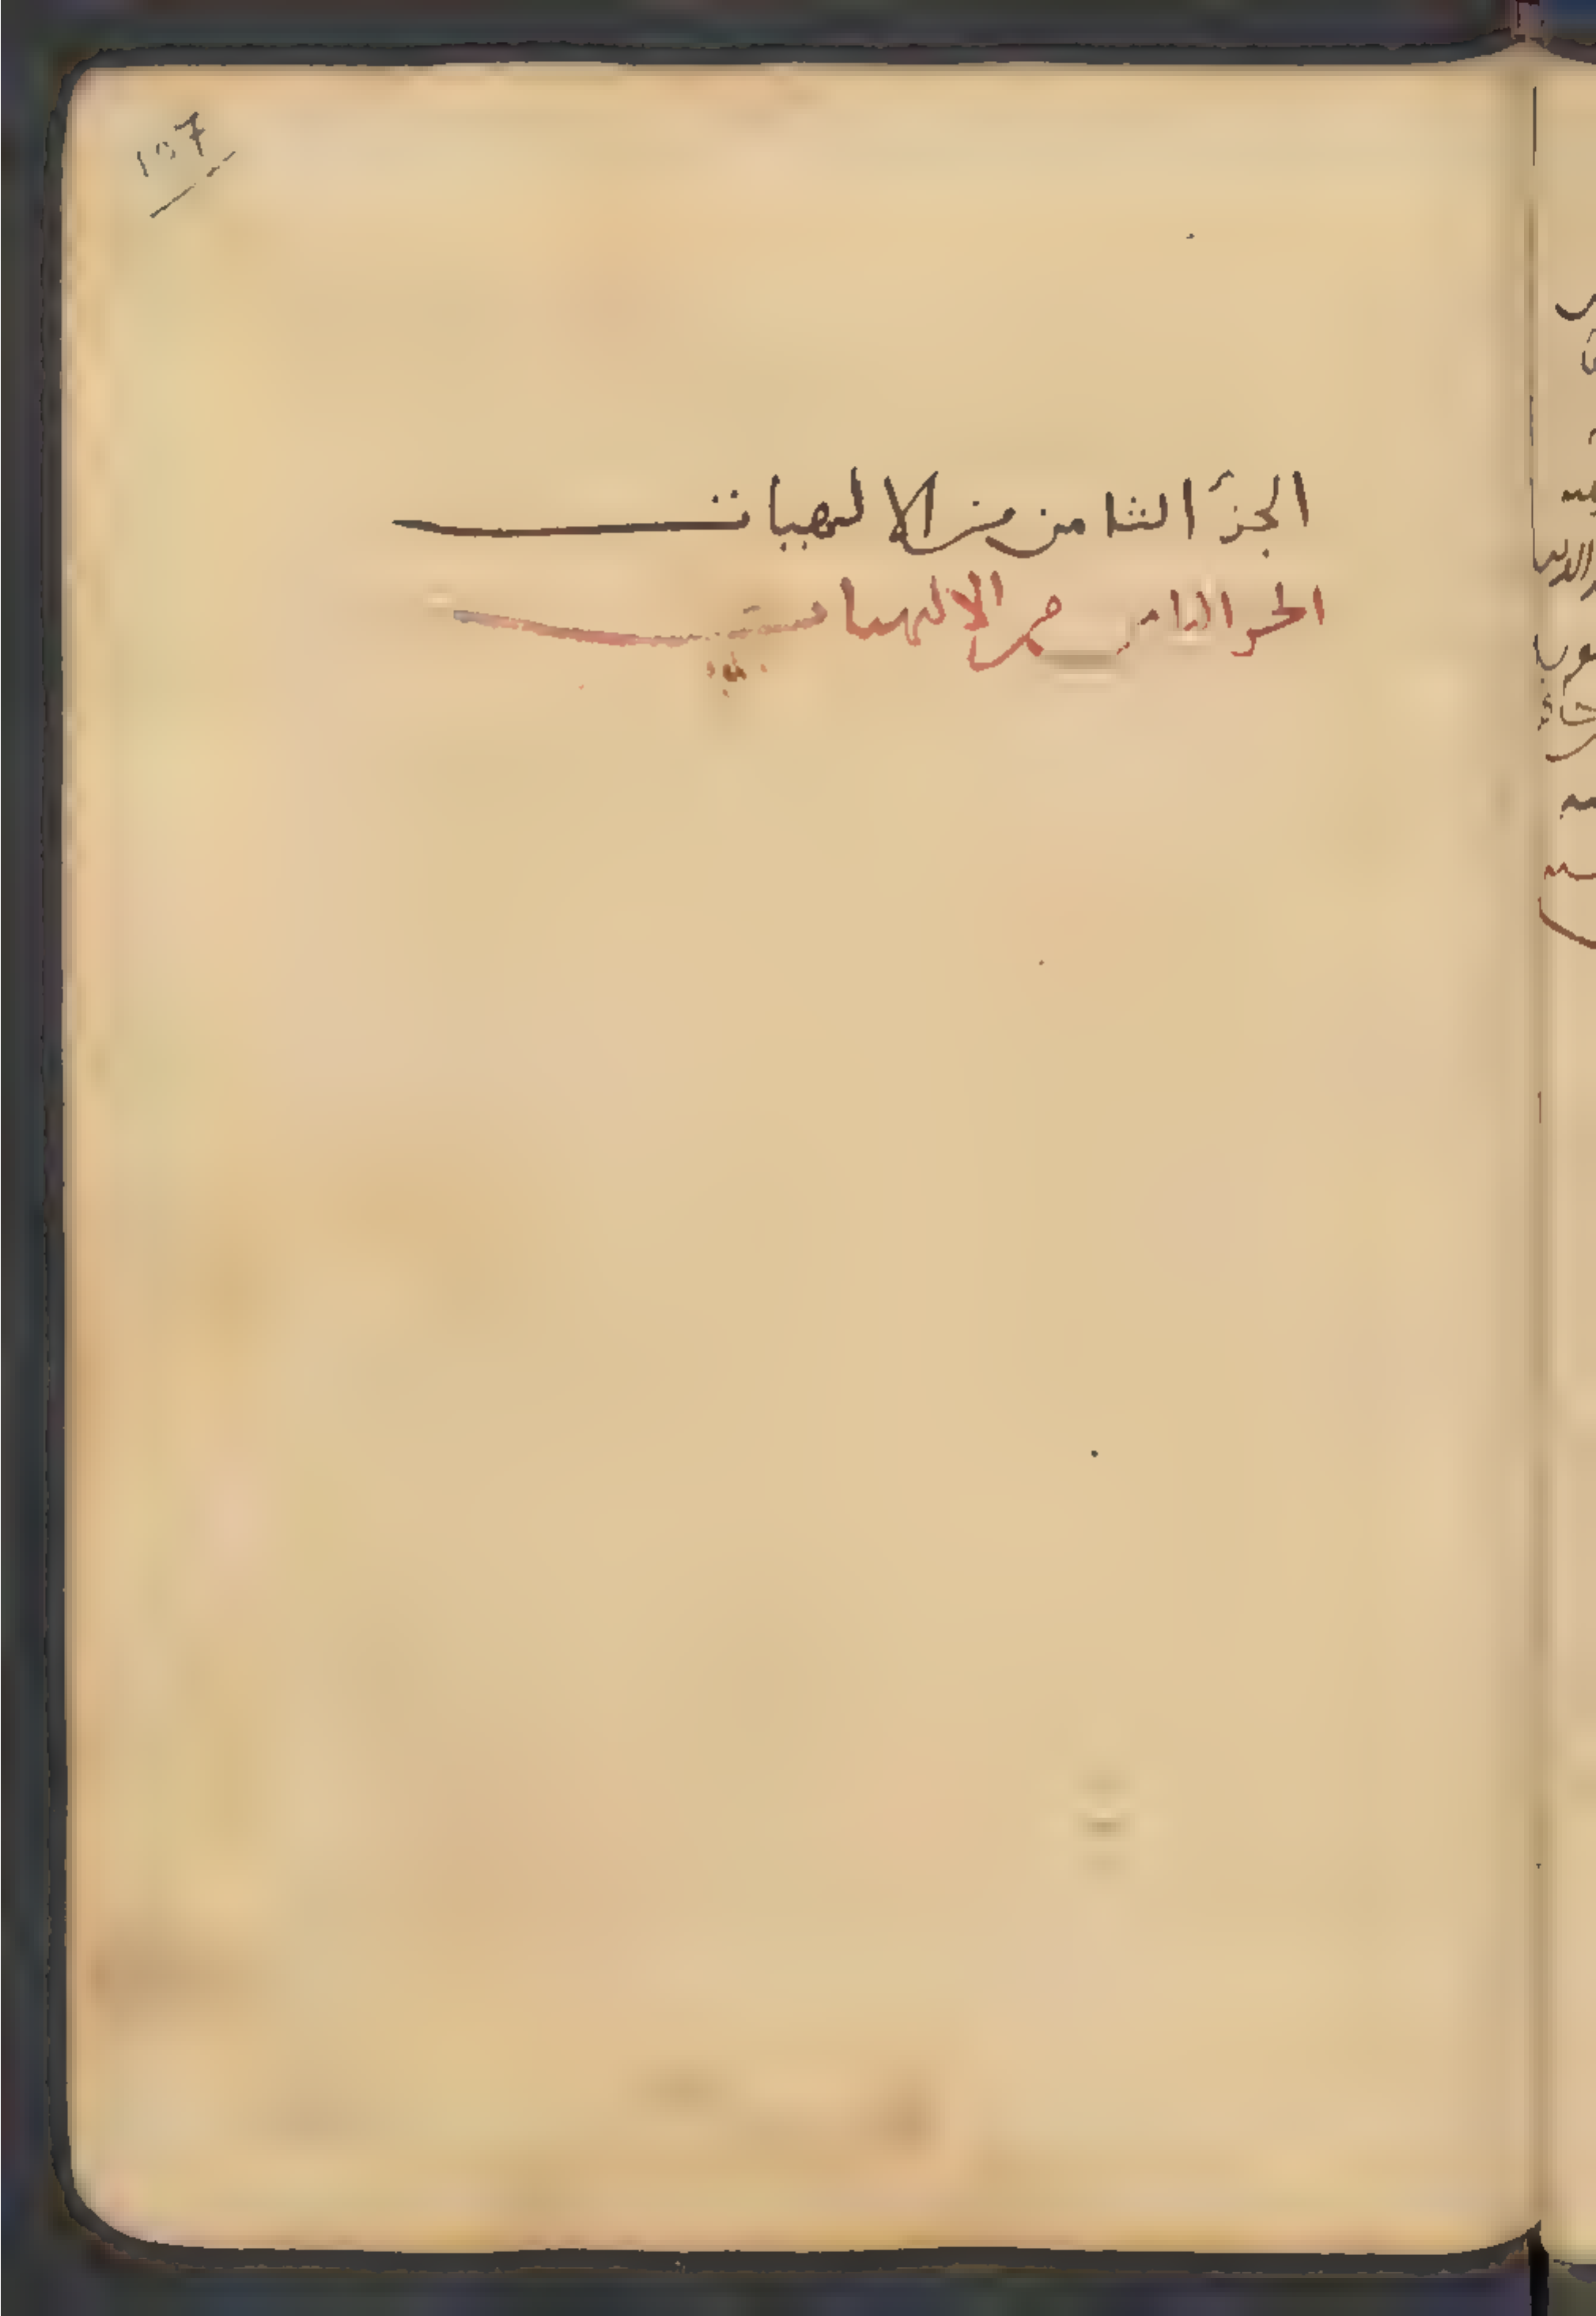 الجزء الثامن من الالهيات
الجزء الثامن من الالهيات